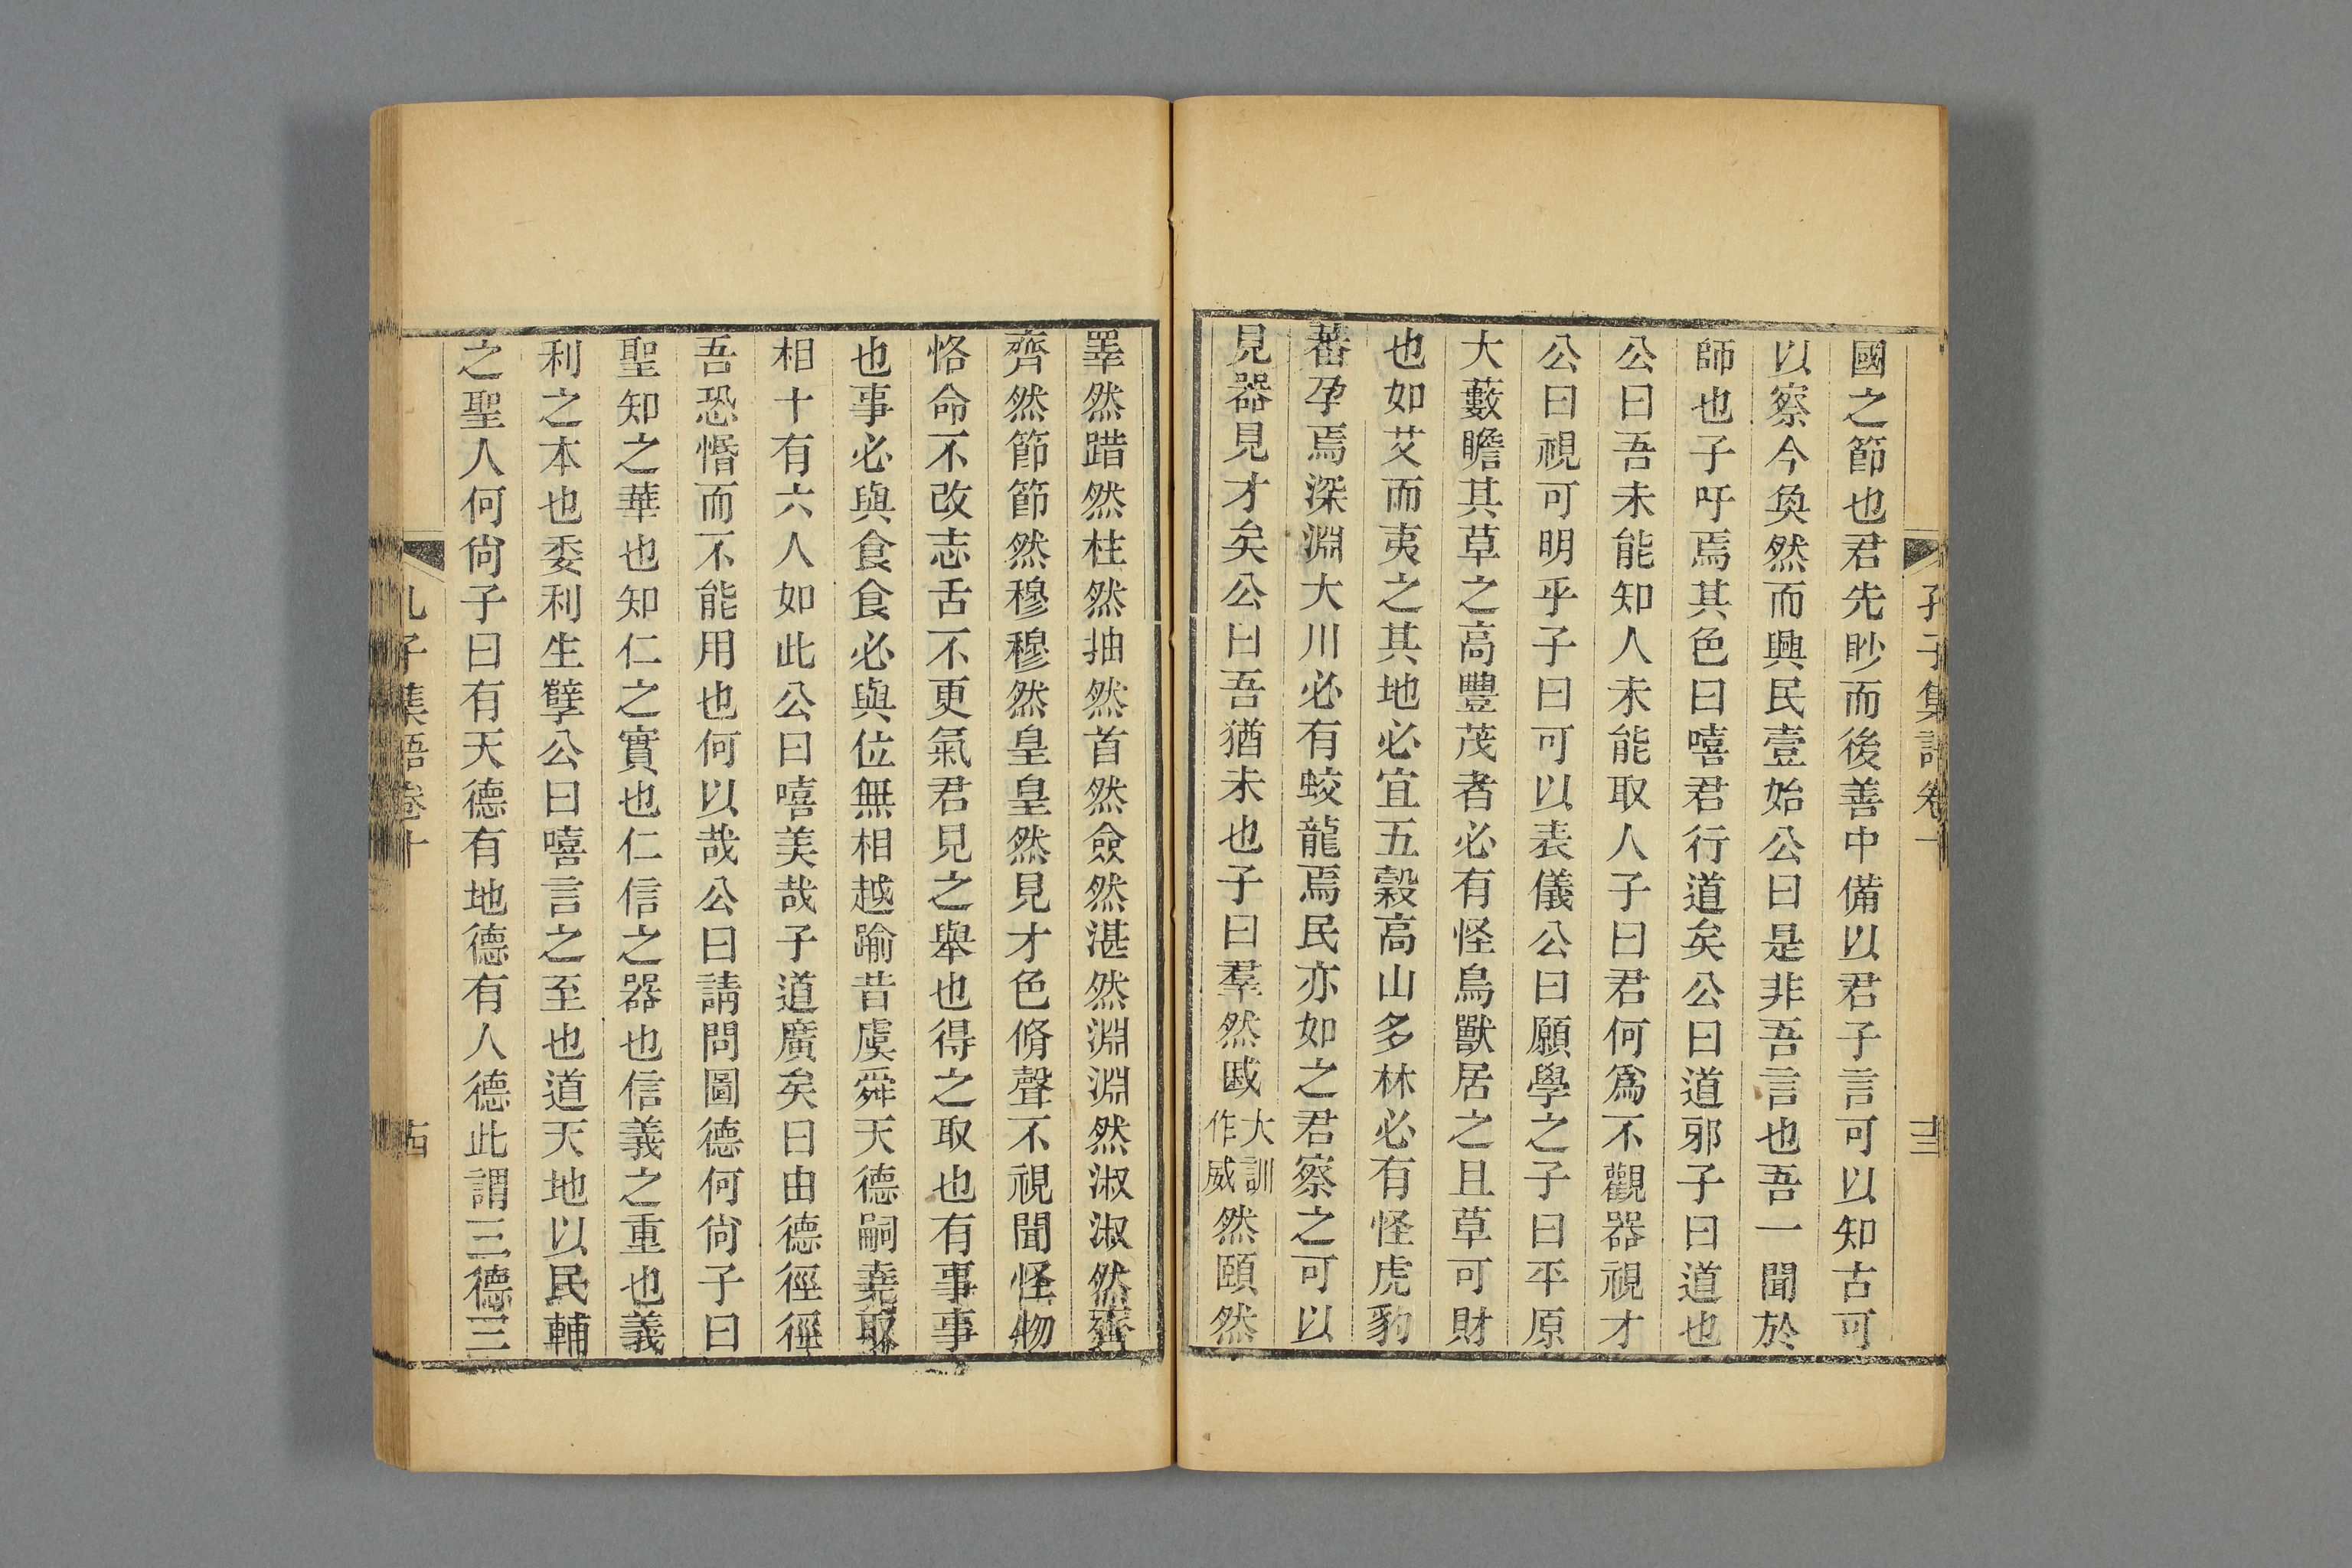 孔子集語卷十
十三
國之節也君先眇而後善中備以君子言可以知古可
以察今奐然而興民壹始公曰是非吾言也吾一聞於
師也子吁焉其色曰嘻君行道矣公曰道邪子曰道也
公曰吾未能知人未能取人子曰君何爲不觀器視才
公曰視可明乎子曰可以表儀公曰願學之子曰平原
大藪瞻其草之高豐茂者必有怪鳥獸居之且草可財
也如艾而夷之其地必宜五穀高山多林必有怪虎豹
蕃孕焉深淵大川必有蛟龍焉民亦如之君察之可以
見器見才矣公曰吾猶未也子曰羣然戚大訓作威然頤然
睪然踖然柱然抽然首然僉然湛然淵淵然淑淑然齊
齊然節節然穆穆然皇皇然見才色脩聲不視聞怪物
恪命不改志舌不更氣君見之舉也得之取也有事事
也事必與食食必與位無相越踰昔虞舜天德嗣堯取
相十有六人如此公曰嘻美哉子道廣矣曰由德徑徑
吾恐惛而不能用也何以哉公曰請問圖德何尙子曰
聖知之華也知仁之實也仁信之器也信義之重也義
利之本也委利生孼公曰嘻言之至也道天地以民輔
之聖人何尙子曰有天德有地德有人德此謂三德三
孔子集語卷十
十四